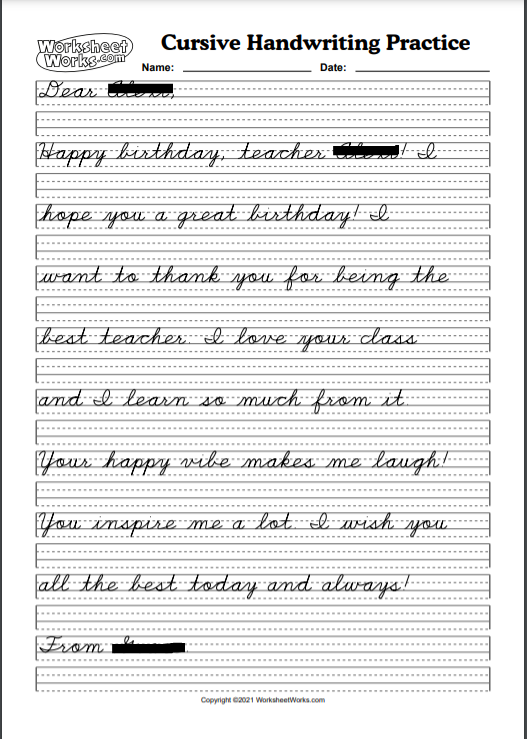 Worksheet
Works.com
Cursive Handwriting Practice
Name: Date:
Dear ,
Happy birthday, teacher ! I
hope you a great birthday! I
want to thank you for being the
best teacher. I love your class
and I learn so much from it.
Your happy vibe makes me laugh!
You inspire me a lot. I wish you
all the best today and always!
From .
Copyright ©2021 WorksheetWorks.com